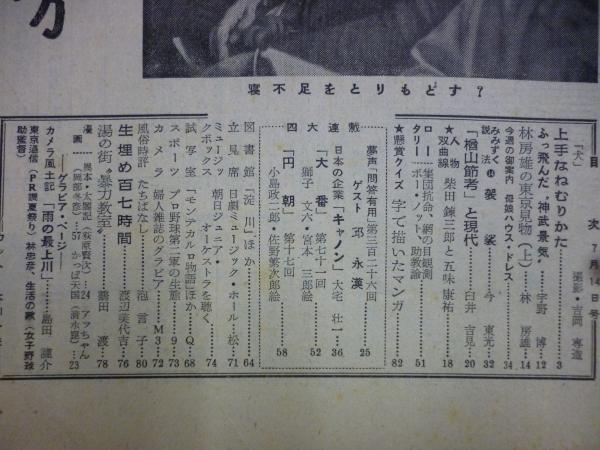 方
寝不足をとりもどす?
目次 7月14日号
「犬」 撮影・吉岡専造
上手なねむりかた……3
ふっ飛んだ“神武景気”……宇野博……12
林房雄の東京見物(上)……林房雄……14
今週の御案内 母娘ハウス・ドレス……34
みみずく説法⑭ 袈裟……今東光……32
「楢山節考」と現代……臼井吉見……20
★人物双曲線 柴田錬三郎と五味康祐……18
ロータリー 集団抗命、網の目観測 ポー・ノット、助教諭……51
★懸賞クイズ 字で描いたマンガ……82
夢声「問答有用」第三百二十六回 ゲスト 邱永漢……25
日本の企業「キャノン」大宅壮一……36
連載
「大番」第七十一回 獅子文六・宮本三郎絵……52
四大
「円朝」第十七回 小島政二郎・佐野繁次郎絵……58
図書館 「淀川」ほか……64
立見席 日劇ミュージック・ホール……松……71
ミュージックボックス 朝日ジュニア・オーケストラを聴く……74
試写室 「モンパルロ物語」ほか……Q……68
スポーツ プロ野球第二軍の生態……9……73
カメラ 婦人雑誌のグラビア……M3……72
風俗時評 たちばなし……泡言子……80
生埋め百七時間……渡辺美代吉……76
湯の街“暴力教室”……鷺田渡……78
漫画 異本・太閤記(萩原賢次)……24 アッちゃん(岡部冬彦)……57 かっぱ天国(清水崑)……23
――グラビア・ページ――
カメラ風土記「雨の最上川」……島田謹介
東京通信(PR調夏祭り)林忠彦、生活の歌(女子野球助監督)